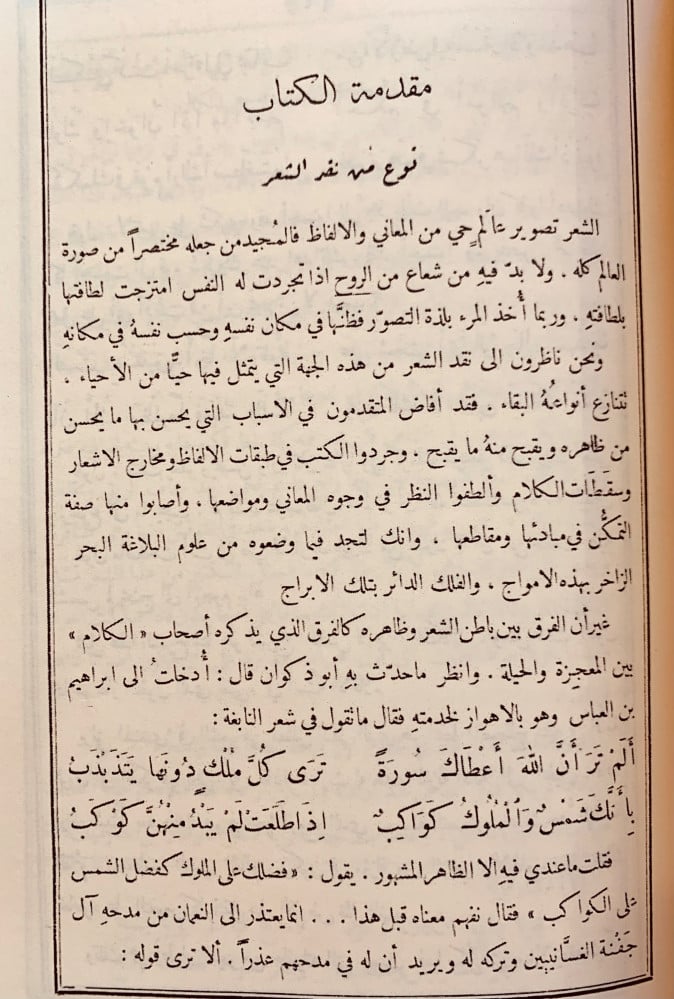 مقدمة الكتاب
نوع من نقد الشعر
الشعر تصوير عالَمٍ حي من المعاني والالفاظ فالمُجيد من جعله مختصراً من صورة
العالم كله . ولا بدّ فيهِ من شعاع من الروح اذا تجردت له النفس امتزجت لطافتها
بلطافتهِ ، وربما أُخذ المرء بلذة التصوّر فظنَّها في مكان نفسهِ وحسب نفسهُ في مكانهِ
ونحن ناظرون الى نقد الشعر من هذه الجهة التي يتمثل فيها حيًّا من الأحياء ،
تتنازع أنواعهُ البقاء . فقد أفاض المتقدمون في الاسباب التي يحسن بها ما يحسن
من ظاهره ويقبح منهُ ما يقبح ، وجردوا الكتب في طبقات الالفاظ ومخارج الاشعار
وسقَطَات الكلام وألطفوا النظر في وجوه المعاني ومواضعها ، وأصابوا منها صفة
التمكُّن في مبادئها ومقاطعها ، وانك لتجد فيما وضعوه من علوم البلاغة البحر
الزاخر بهذه الامواج ، والفلك الدائر بتلك الابراج
غير أن الفرق بين باطن الشعر وظاهره كالفرق الذي يذكره أصحاب « الكلام »
بين المعجزة والحيلة . وانظر ما حدّث بهِ أبو ذكوان قال : أُدخلتُ الى ابراهيم
بن العباس وهو بالاهواز لخدمتهِ فقال ما تقول في شعر النابغة :
أَلَمْ تَرَ أَنَّ اللهَ أَعْطَاكَ سُورَةً تَرَى كُلَّ مَلْكٍ دُونَهَا يَتَذَبْذَبُ
بِأَنَّكَ شَمْسٌ وَٱلْمُلُوكُ كَوَاكِبٌ اِذَا طَلَعَتْ لَمْ يَبْدُ مِنْهُنَّ كَوْكَبُ
فقلت ما عندي فيهِ الا الظاهر المشهور . يقول : « فضلك على الملوك كفضل الشمس
على الكواكب » فقال نفهم معناه قبل هذا . . . انما يعتذر الى النعمان من مدحهِ آل
جَفْنة الغسَّانيين وتركه له ويريد أن له في مدحهم عذراً . ألا ترى قوله :